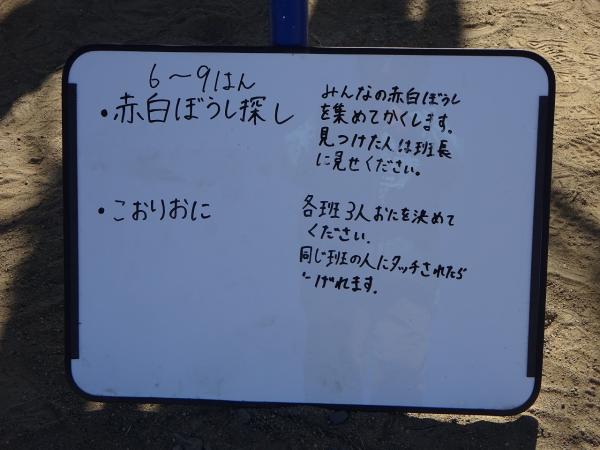 6〜9はん
・赤白ぼうし探し
みんなの赤白ぼうし
を集めてかくします。
見つけた人は班長
に見せください。
・こおりおに
各班3人おにを決めて
ください.
同じ班の人にタッチされたら
げれます.